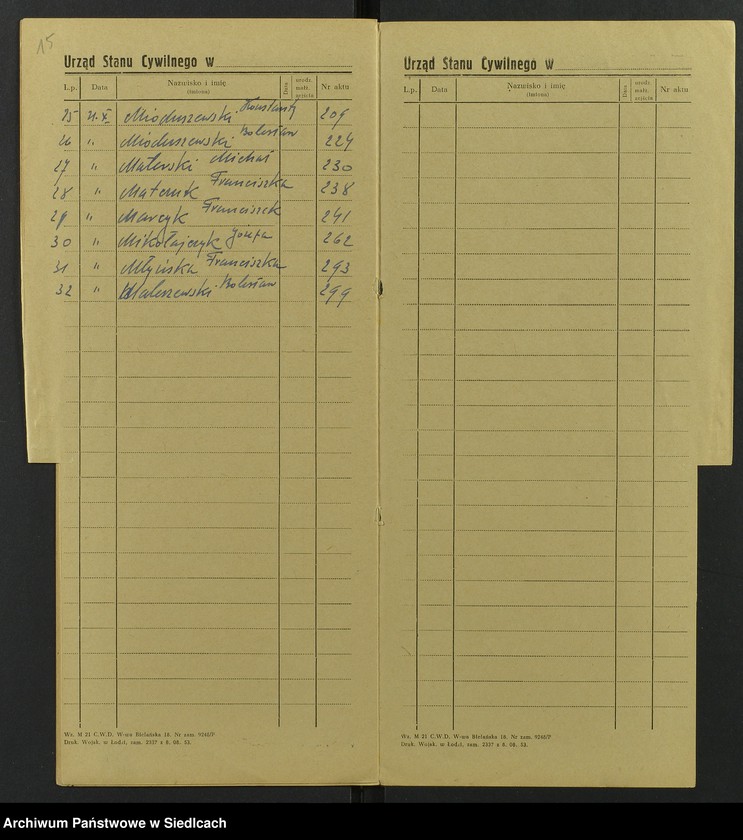 15
Urząd Stanu Cywilnego w
L.p. Data Nazwisko i imię (imiona) Data urodz. małż. Nr aktu
25 21.X Mioduszewski Konstanty 209
26 " Mioduszewski Bolesław 224
27 " Malewski Michał 230
28 " Maternik Franciszka 238
29 " Marczyk Franciszek 241
30 " Mikołajczyk Józefa 262
31 " Młyńska Franciszka 293
32 " Maleszewski Bolesław 299
Wz. M 21 C.W.D. W-wa Bielańska 18. Nr zam. 9246/P
Druk. Wojsk. w Łodzi, zam. 2337 z 8. 08. 53.
Urząd Stanu Cywilnego w
L.p. Data Nazwisko i imię (imiona) Data urodz. małż. Nr aktu
Wz. M 21 C.W.D. W-wa Bielańska 18. Nr zam. 9246/P
Druk. Wojsk. w Łodzi, zam. 2337 z 8. 08. 53.
Archiwum Państwowe w Siedlcach